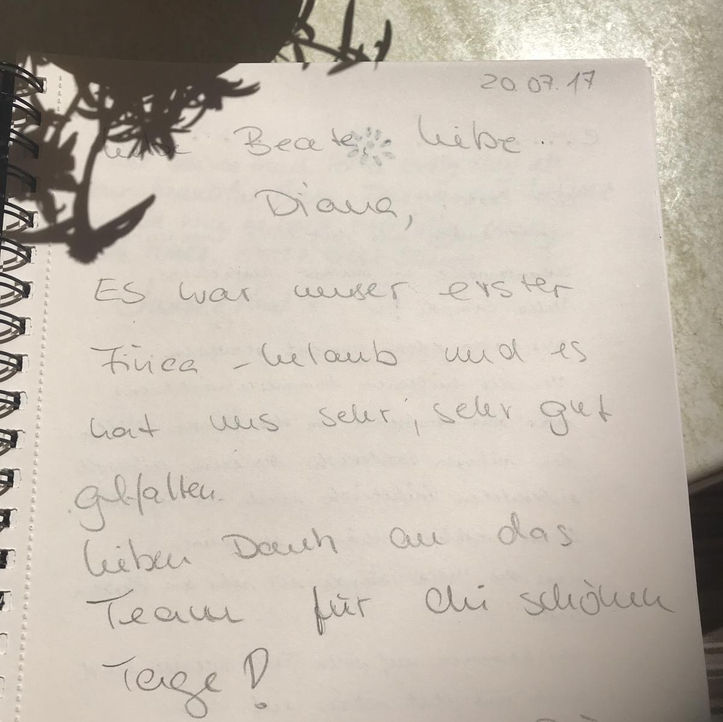 20.07.17
Liebe Beate, liebe
Diana,
Es war unser erster
Finca-Urlaub und es
hat uns sehr, sehr gut
gefallen.
Lieben Dank an das
Team für die schönen
Tage!